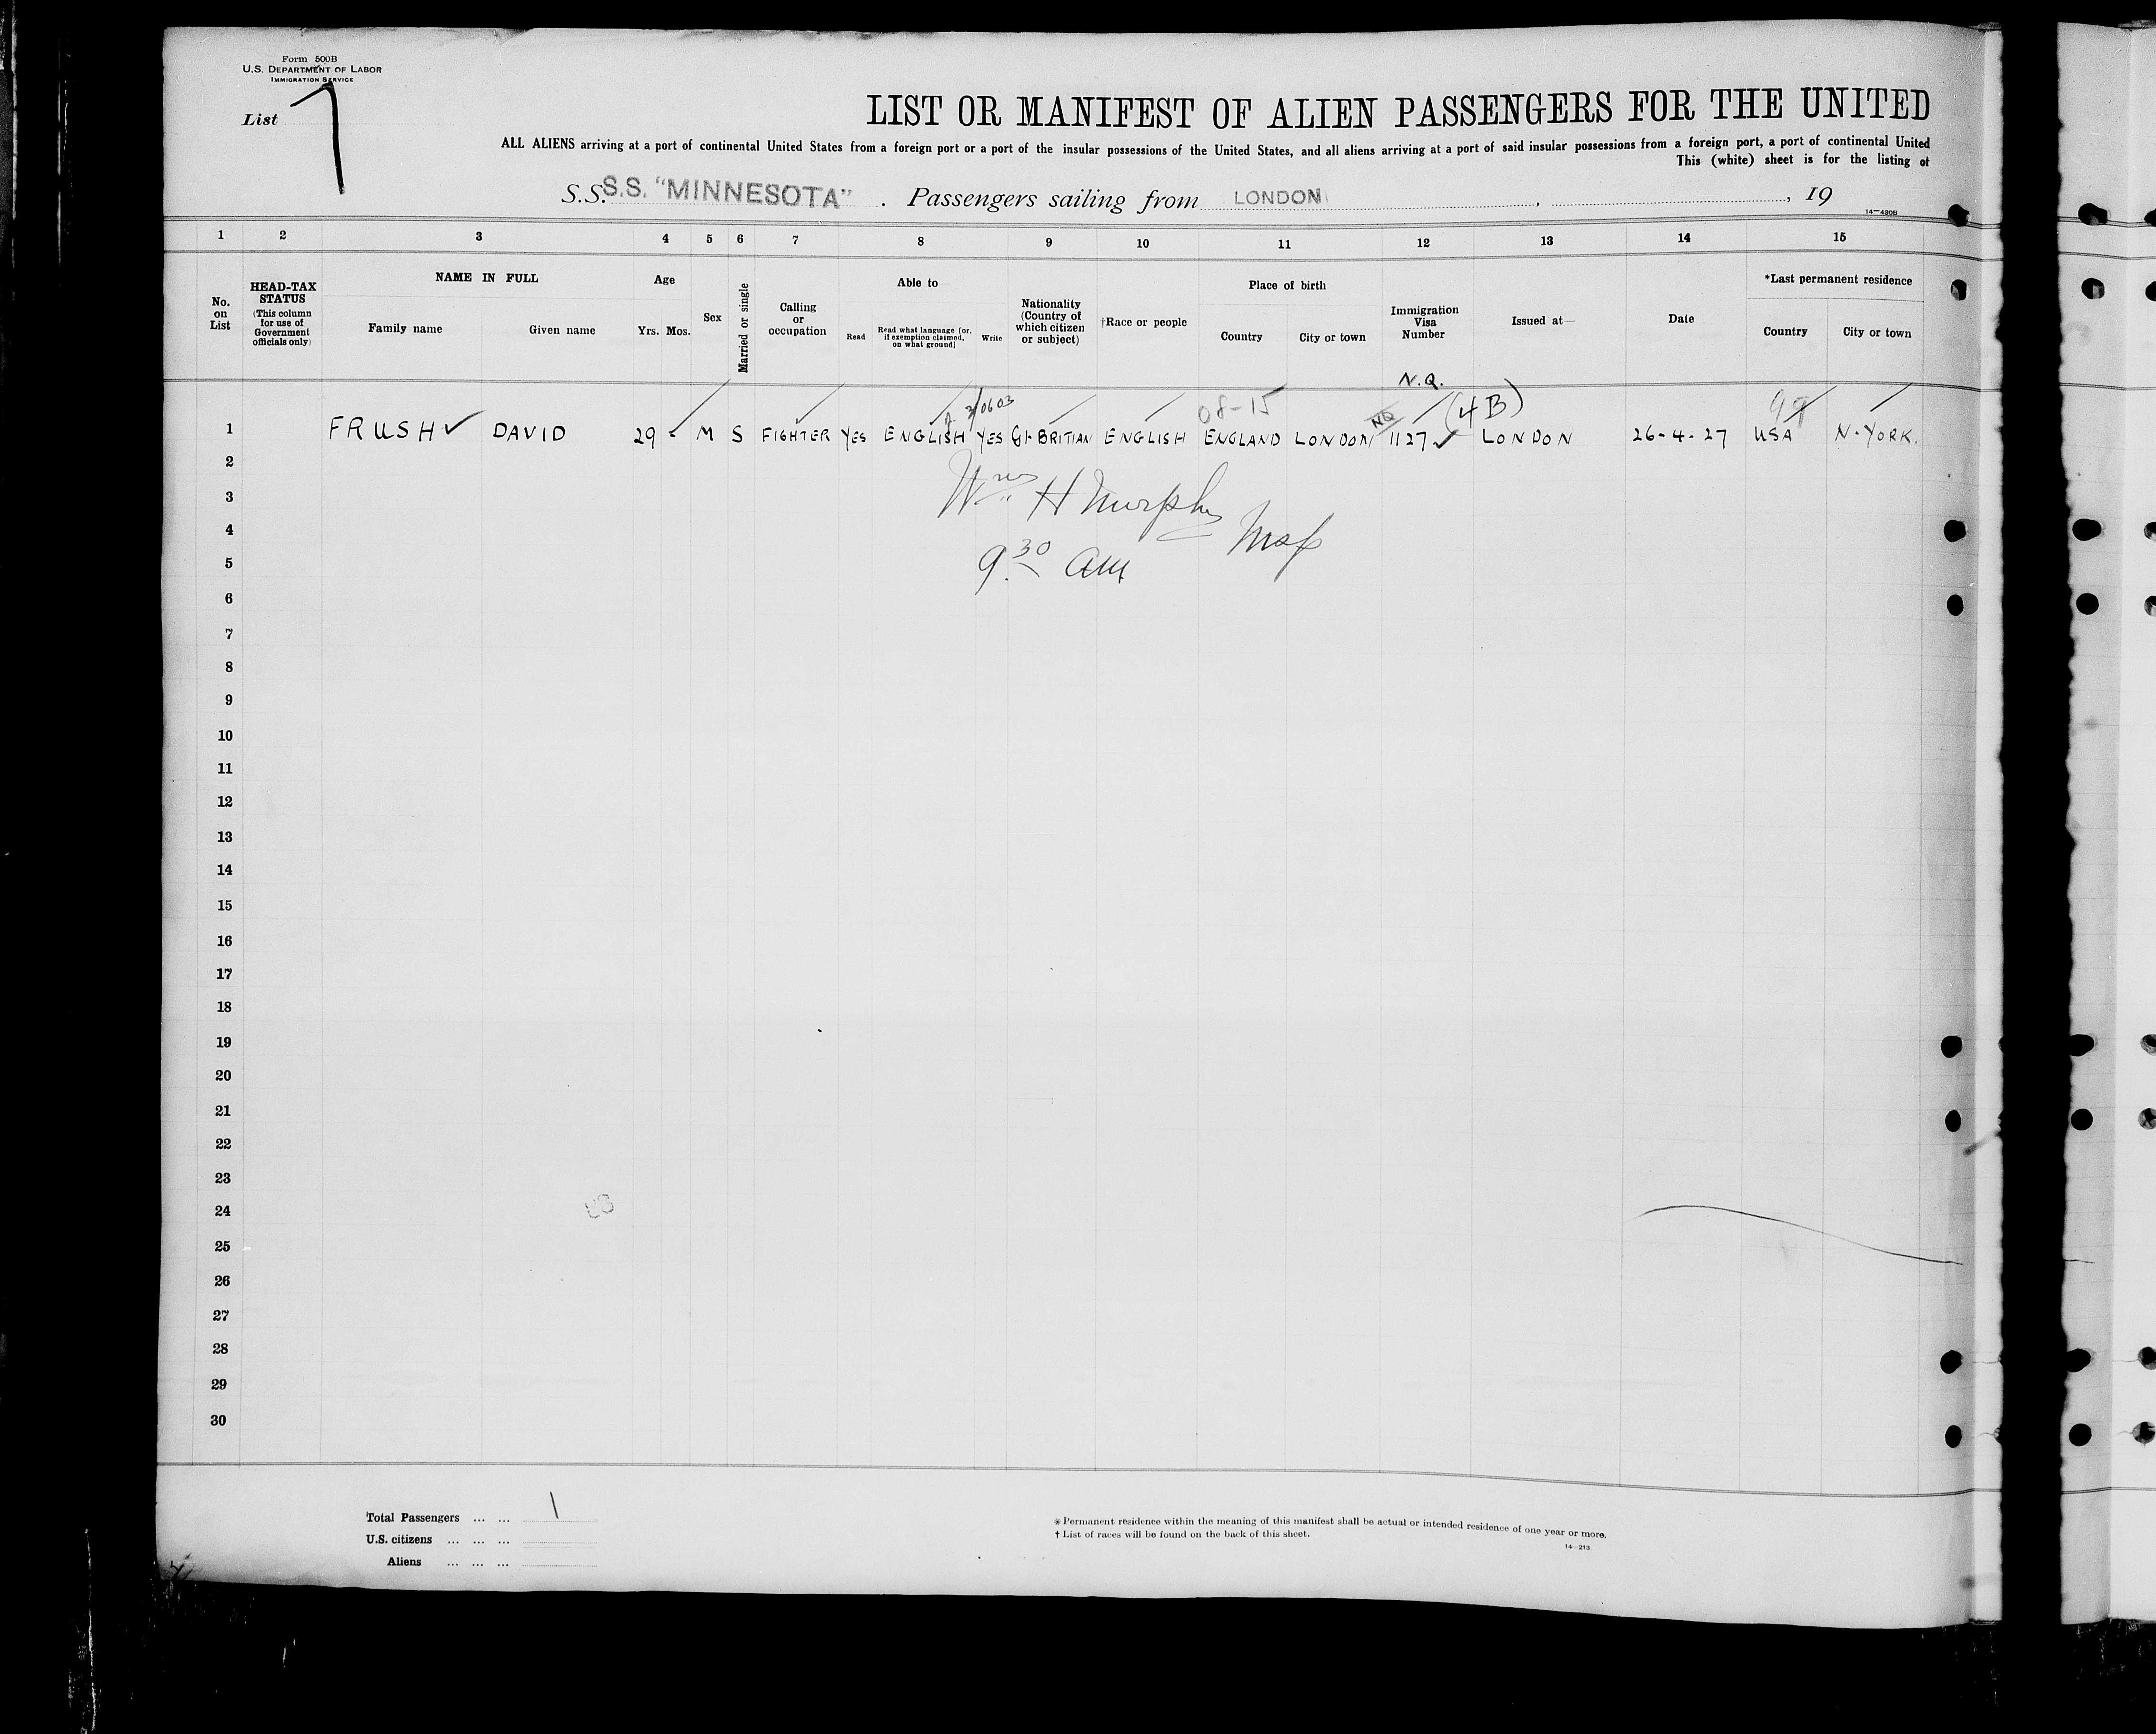 Form 500B
U.S. DEPARTMENT OF LABOR
IMMIGRATION SERVICE
List 7
LIST OR MANIFEST OF ALIEN PASSENGERS FOR THE UNITED
ALL ALIENS arriving at a port of continental United States from a foreign port or a port of the insular possessions of the United States, and all aliens arriving at a port of said insular possessions from a foreign port, a port of continental United
This (white) sheet is for the listing of
S.S. S.S. "MINNESOTA" . Passengers sailing from LONDON , , 19
14—430B
1 2 3 4 5 6 7 8 9 10 11 12 13 14 15
No. on List
HEAD-TAX STATUS (This column for use of Government officials only)
NAME IN FULL
Family name Given name
Age
Yrs. Mos.
Sex
Married or single
Calling or occupation
Able to
Read Read what language [or, if exemption claimed, on what ground] Write
Nationality (Country of which citizen or subject)
†Race or people
Place of birth
Country City or town
Immigration Visa Number
Issued at—
Date
*Last permanent residence
Country City or town
N.Q.
08-15 NQ (4B)
1 FRUSH ✓ DAVID 29 - M S FIGHTER YES ENGLISH YES Gt. BRITIAN ENGLISH ENGLAND LONDON 1127 ✓ LONDON 26-4-27 USA N. YORK.
2
Wm H Murphy
3
4
Insp
9.30 am
5
6
7
8
9
10
11
12
13
14
15
16
17
18
19
20
21
22
23
24
25
26
27
28
29
30
Total Passengers ... ... 1
U.S. citizens ... ... ...
Aliens ... ... ...
* Permanent residence within the meaning of this manifest shall be actual or intended residence of one year or more.
† List of races will be found on the back of this sheet.
14—213